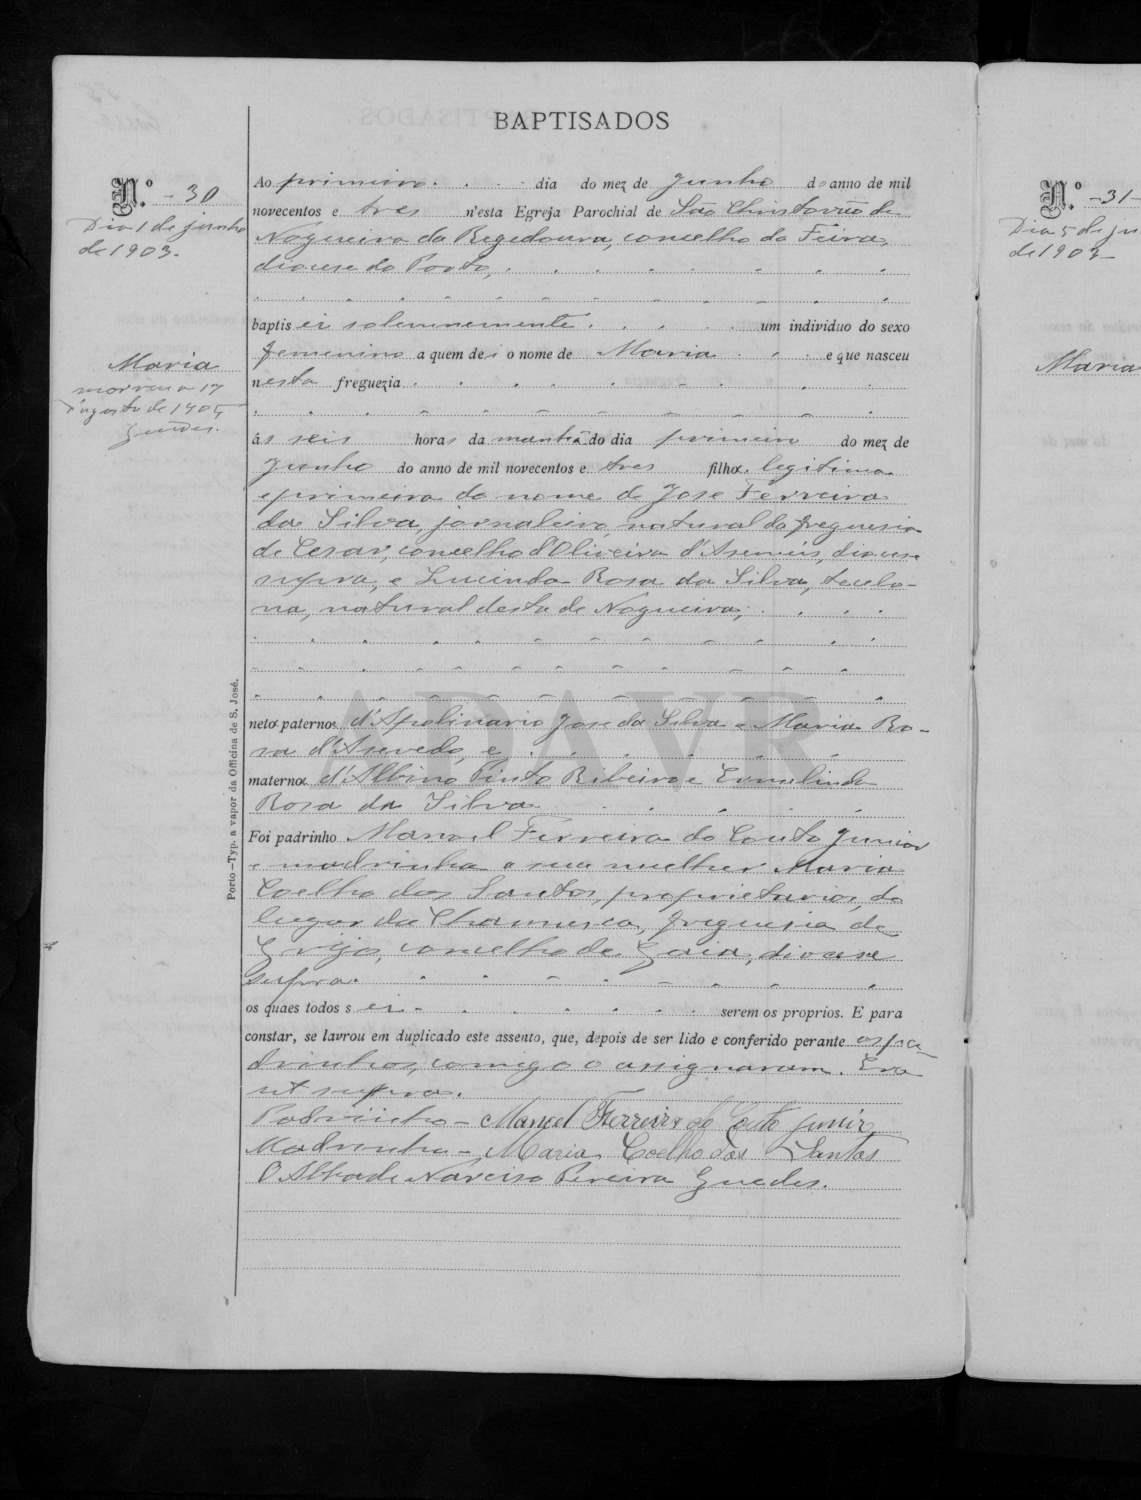 BAPTISADOS
N.º - 30
Dia 1 de junho
de 1903.
Maria
morreu a 17
d'agosto de 1905
Guedes.
Ao primeiro. dia do mez de Junho do anno de mil
novecentos e tres n'esta Egreja Parochial de São Christovão de
Nogueira da Regedoura, concelho da Feira,
diocese do Porto,
baptisei solemnemente um individuo do sexo
femenino a quem dei o nome de Maria e que nasceu
nesta freguezia
ás seis horas da manhã do dia primeiro do mez de
Junho do anno de mil novecentos e tres filha legitima
e primeira do nome de Jose Ferreira
da Silva, jornaleiro, natural da freguesia
de Cesar, concelho d'Oliveira d'Asemeis, diocese
supra, e Lucinda Rosa da Silva, tecela-
na, natural desta de Nogueira;
neta paterna d'Apolinario Jose da Silva e Maria Ro-
sa d'Asevedo, e
materna d'Albino Pinto Ribeiro e Ermelinda
Rosa da Silva
Foi padrinho Manoel Ferreira do Couto Junior
e madrinha a sua mulher Maria
Coelho dos Santos, proprietarios, do
lugar da Chamusca, freguesia de
Grijo, concelho de Gaia, diocese
supra.
os quaes todos sei serem os proprios. E para
constar, se lavrou em duplicado este assento, que, depois de ser lido e conferido perante os pa-
drinhos, comigo o assignaram. Era
ut supra.
Padrinho - Manuel Ferreira do Couto Junior
Madrinha - Maria Coelho dos Santos
O Abbade Narciso Pereira Guedes.
Porto—Typ. a vapor da Officina de S. José.
ADAVR
N.º -31-
Dia 5 de ju
de 1903
Maria